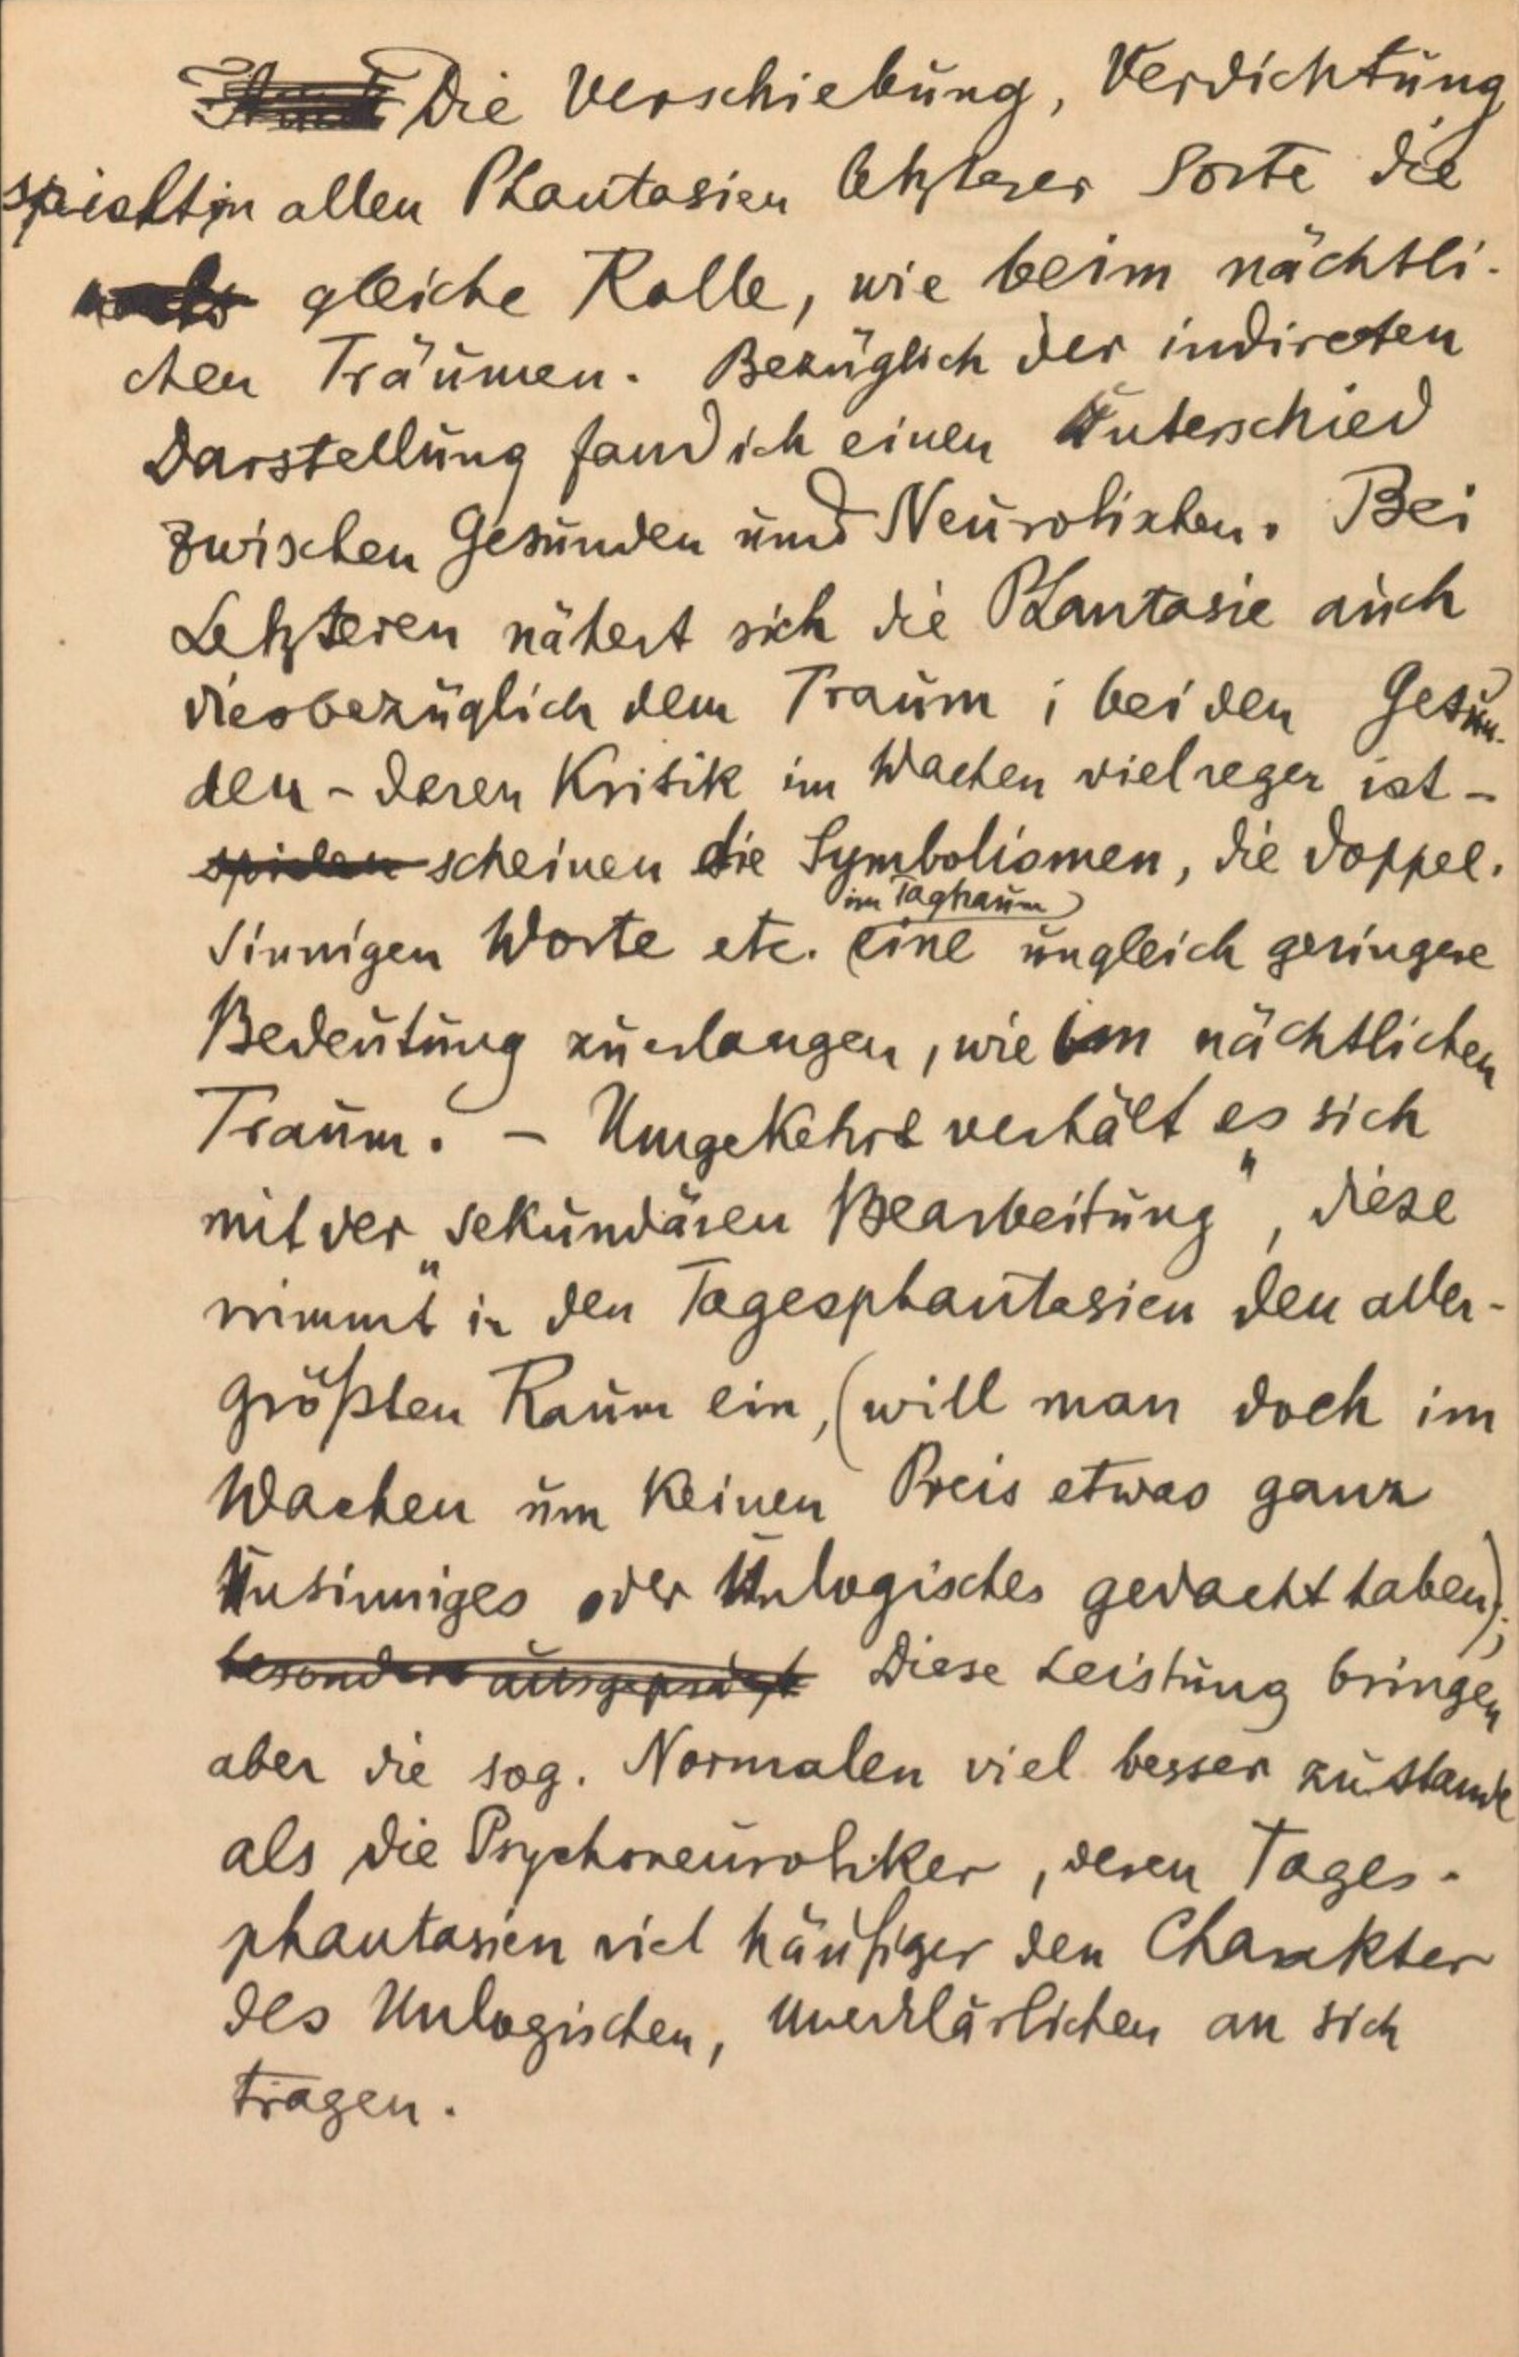 Die Verschiebung, Verdichtung
spielt in allen Phantasien letzterer Sorte die
gleiche Rolle, wie beim nächtli-
chen Träumen. Bezüglich der indirecten
Darstellung fand ich einen Unterschied
zwischen Gesunden und Neurotischen. Bei
Letzteren nähert sich die Phantasie auch
diesbezüglich dem Traum; bei den Gesun-
den - deren Kritik im Wachen viel reger ist -
spielen scheinen die Symbolismen, die doppel-
im Tagtraum
sinnigen Worte etc. eine ungleich geringere
Bedeutung zu erlangen, wie im nächtlichen
Traum. - Umgekehrt verhält es sich
mit der „sekundären Bearbeitung", diese
nimmt in den Tagesphantasien den aller-
größten Raum ein, (will man doch im
Wachen um keinen Preis etwas ganz
Unsinniges oder Unlogisches gedacht haben);
besonders ausgeprägt Diese Leistung bringen
aber die sog. Normalen viel besser zustande
als die Psychoneurotiker, deren Tages-
phantasien viel häufiger den Charakter
des Unlogischen, Unerklärlichen an sich
tragen.